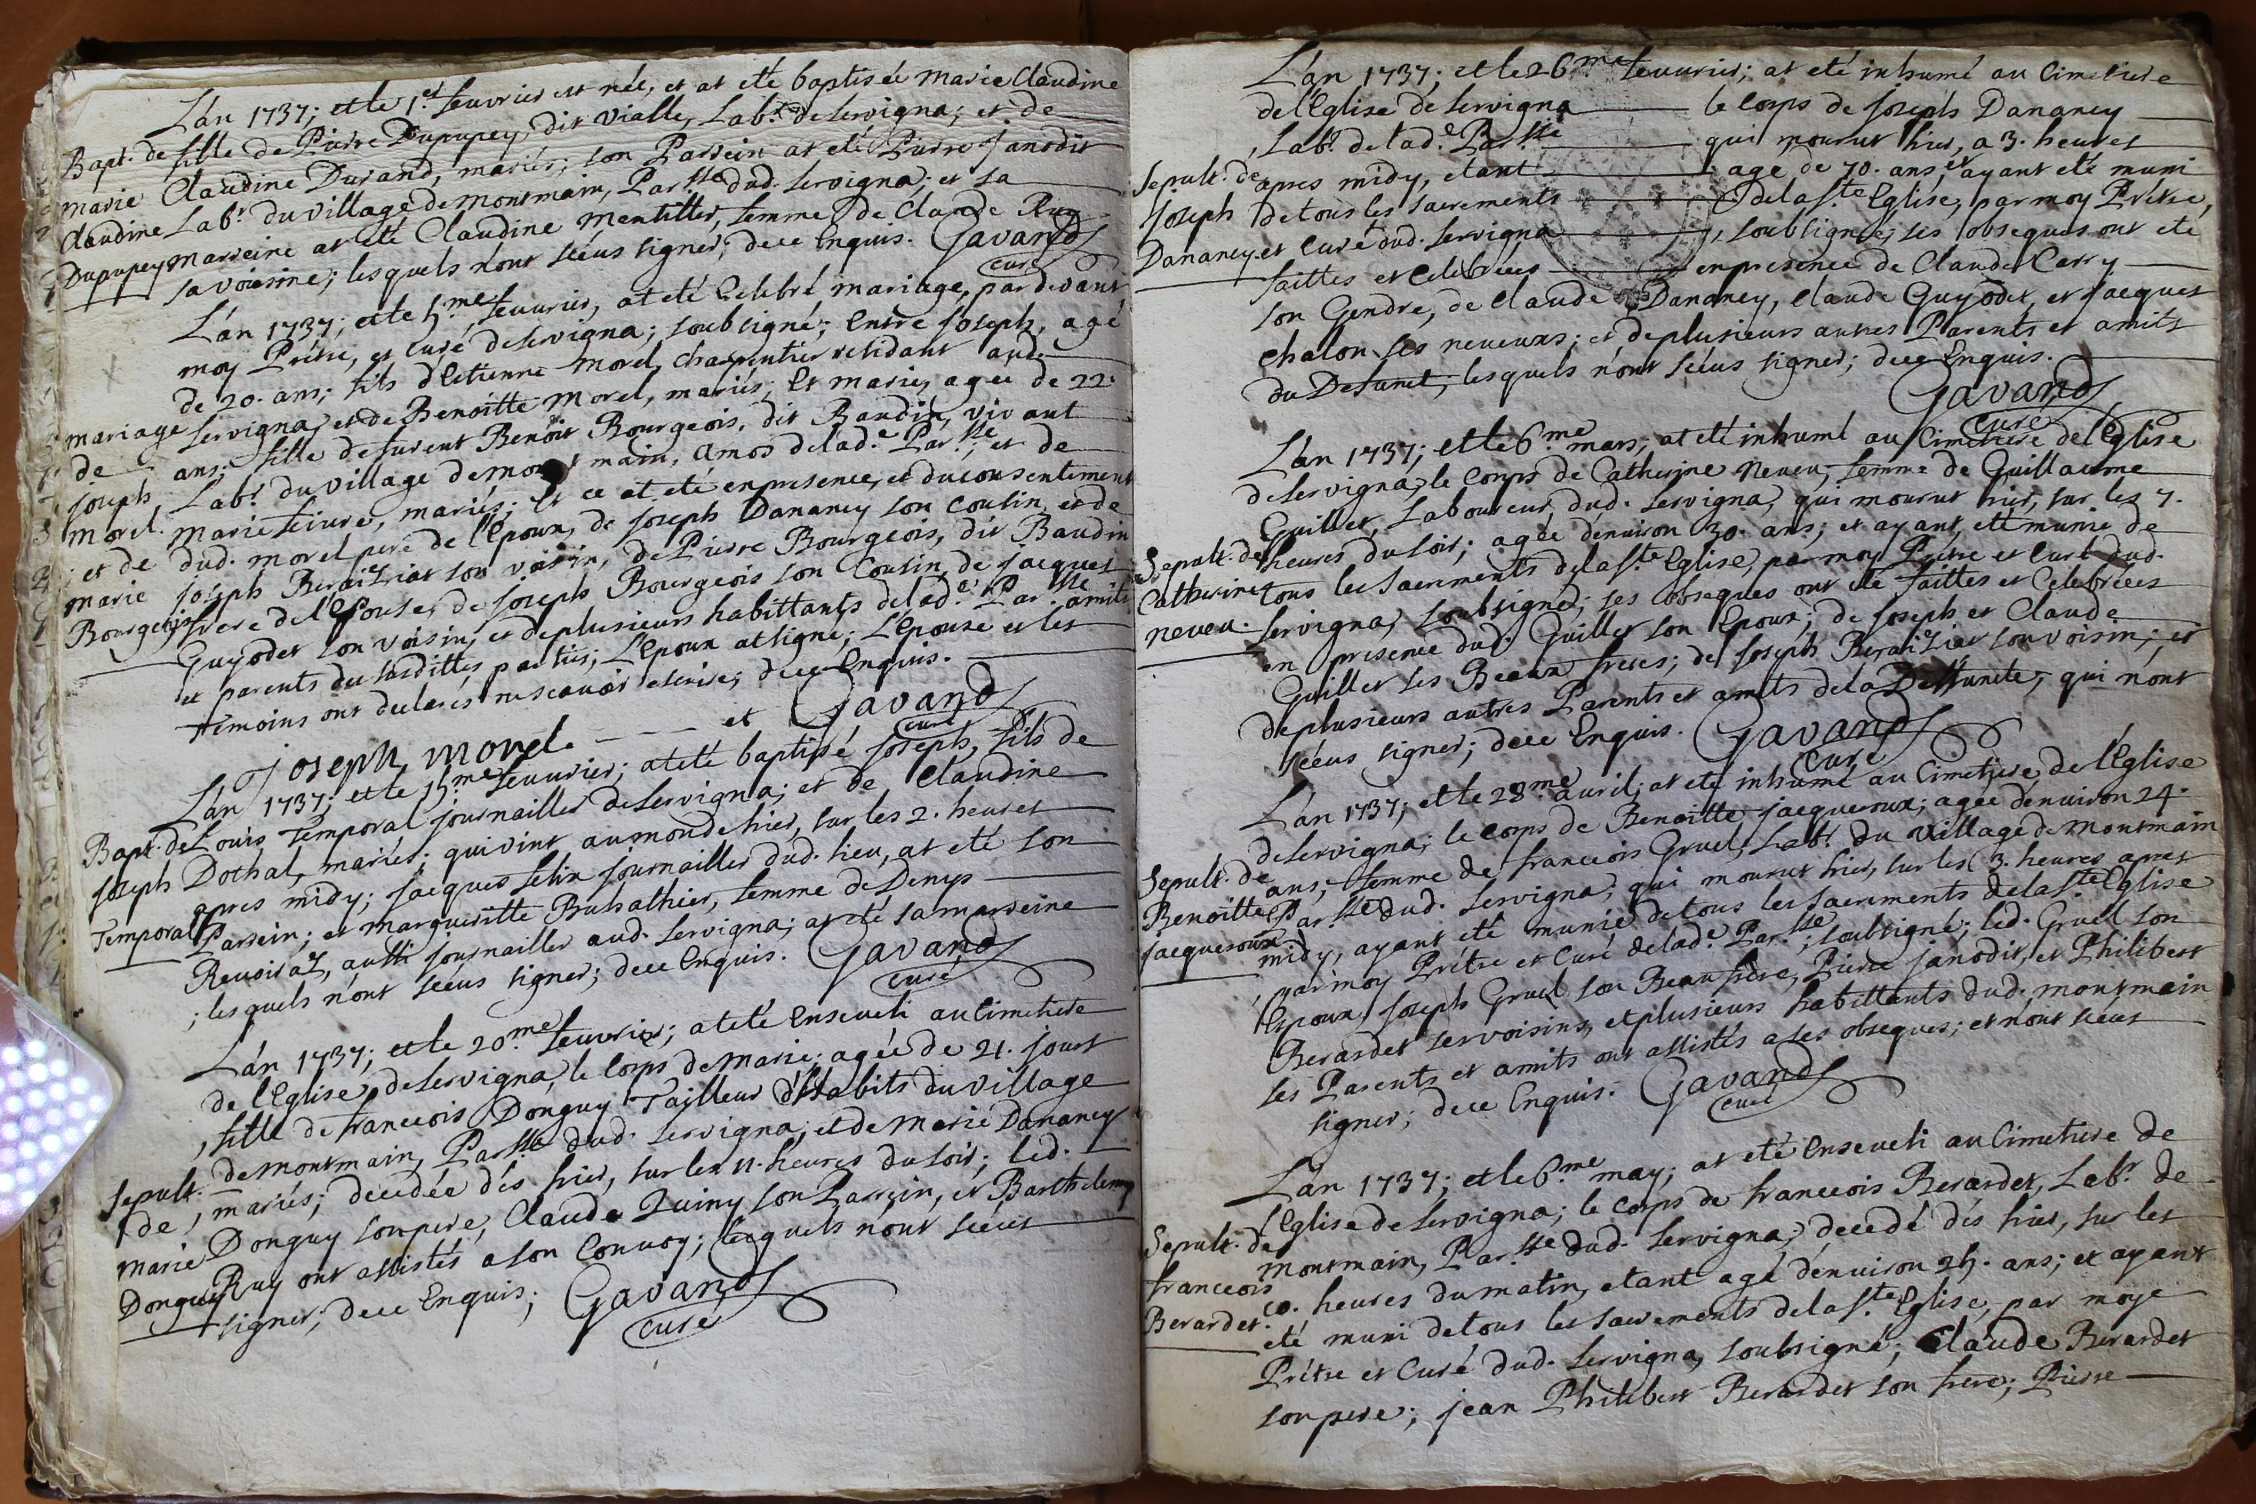 L'án 1737; et le 1.er feuvrier est née, et at eté baptisée Marie Claudine
Bapt. de fille de Pierre Dupupey, dit Vialle, Lab.r de Servigna; et de
Marie Claudine Durand, mariés; son Parrein at eté Pierre Janodit
Claudine Lab.r du village de montmain, Par.sse dud. Servigna; et sa
Dupupey marreine at eté Claudine Mentillet, femme de Claude Ruy
sa voisine; lesquels n'ont sçéus signer; de ce Enquis. Gavand
curé
L'án 1737; et le 5.me feuvrier, at eté Celebré mariage, pardevant
moy Prétre, et Curé de Servigna; soubsigné; Entre Joseph, agé
de 20. ans; fils d'Estienne Morel, charpentier residant aud.
mariage Servigna, et de Benoitte Morel, mariés; Et Marie, agée de 22.
de ans; fille de furent Benoit Bourgeois, dit Baudin, vivant
Joseph Lab.r du village de montmain, Amos de lad.e Par.sse, et de
Morel. Marie feivre, mariés; Et ce at eté en presence, et du consentement
; et de dud. morel pere de l'Epoux, de Joseph Dananey son Cousin, et de
Marie Joseph Beraiziat son voisin, de Pierre Bourgeois, dit Baudin
Bourgeois frere de l'Epouse, de Joseph Bourgeois son Cousin, de Jacques
Guyodet son voisin, et de plusieurs habittants de lad.e Par.sse amits
et parents des susdittes parties; L'Epoux at signé; L'Epouse et les
temoins ont declarés ne scavoir escrire; de ce Enquis.
Joseph Morel. et Gavand
curé
L'án 1737; et le 15.me feuvrier; at eté baptisé Joseph, fils de
Bapt. de Louis Temporal journailler de Servigna; et de Claudine
Joseph Dothal, mariés; qui vint au monde hier, sur les 2. heures
Temporal apres midy; Jacques felix journailler dud. lieu, at eté son
Parrein; et Margueritte Buhathier, femme de Denys
Revoiraz, aussi journailler aud. Servigna; at eté sa marreine
; lesquels n'ont sçéus signer; de ce Enquis. Gavand
curé
L'án 1737; et le 20.me feuvrier; at eté Enseveli au Cimetiere
de l'Eglise, de Servigna, le Corps de Marie; agée de 21. jours
, fille de francois Donguy Tailleur d'Habits du village
Sepult. de montmain, Par.sse dud. Servigna; et de Marie Dananey
de , mariés; decedée dés hier, sur les 11. heures du soir; led.
Marie Donguy son pere, Claude Quiny son Parrein, et Barthelemy
Donguy Ruy ont assistés a son Convoy; lesquels n'ont sçéus
signer; de ce Enquis; Gavand
curé
L'án 1737; et le 26.me feuvrier; at eté inhumé au Cimetiere
de l'Eglise de Servigna le Corps de Joseph Dananey
, Lab.r de lad.e Par.sse qui mourut hier, a 3. heures
Sepult. de apres midy, etant agé de 70. ans, et ayant eté muni
Joseph de tous les sacrements de la S.te Eglise, par moy Prétre,
Dananey. et Curé dud. Servigna , soubsigné; ses obseques ont eté
faittes et Celebrées en presence de Claude Carry
son Gendre, de Claude Dananey, Claude Guyodet, et Jacques
Chalon ses neveux; et de plusieurs autres Parents et amits
du Defunct, lesquels n'ont sçéus signer; de ce Enquis.
Gavand
curé
L'án 1737; et le 6.me mars; at eté inhumé au Cimetiere de l'Eglise
de Servigna, le Corps de Catherine Neveu, femme de Guillaume
Guillet, Laboureur, dud. Servigna, qui mourut hier, sur les 7.
Sepult. de heures du soir; agée d'enuiron 30. ans; et ayant eté munie de
Catherine tous les Sacrements de la S.te Eglise, par moy Prétre et Curé dud.
Neveu. Servigna, soubsigné; ses obseques ont eté faittes et Celebrées
en presence dud. Guillet son Epoux; de Joseph et Claude
Guillet ses Beaux freres; de Joseph Beraiziat son voisin; et
de plusieurs autres Parents et amits de la Deffuncte, qui n'ont
sçéus signer; de ce Enquis. Gavand
curé
L'án 1737; et le 28.me avril; at eté inhumé au Cimetiere de l'Eglise
de Servigna; le Corps de Benoitte Jacqueroux; agée d'enuiron 24.
Sepult. de ans; femme de francois Gruel, Lab.r du village de Montmain
Benoitte Par.sse dud. Servigna; qui mourut hier, sur les 3. heures apres
Jacqueroux midy, ayant eté munie de tous les sacrements de la S.te Eglise
, par moy Prétre et Curé de lad.e Par.sse, soubsigné; led. Gruel son
Espoux, Joseph Gruel son Beaufrère, Pierre Janodit, et Philibert
Berardet ses voisins, et plusieurs habittants dud. montmain
ses Parents et amits ont assistés a ses obseques; et n'ont sçéus
signer; de ce Enquis. Gavand
curé
L'án 1737; et le 6.me may; at eté Enseveli au Cimetiere de
l'Eglise de Servigna; le Corps de francois Berardet, Lab.r de
Sepult. de montmain, Par.sse dud. Servigna, decedé dés hier, sur les
francois 10. heures du matin, etant agé d'enuiron 25. ans; et ayant
Berardet. eté muni de tous les sacrements de la S.te Eglise, par moye
Prétre et Curé dud. Servigna, soubsigné; Claude Berardet
son pere; Jean Philibert Berardet son frere; Pierre